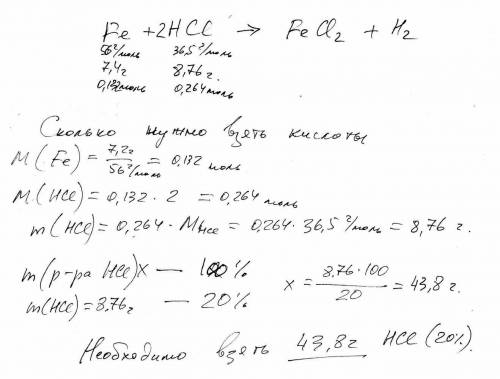 Fe + 2HCl → FeCl₂ + H₂
56 г/моль 36,5 г/моль
7,4 г 8,76 г.
0,132 моль 0,264 моль
Сколько нужно взять кислоты
M(Fe) = 7,2 г / 56 г/моль = 0,132 моль
M(HCl) = 0,132 · 2 = 0,264 моль
m(HCl) = 0,264 · M HCl = 0,264 · 36,5 г/моль = 8,76 г.
m(р-ра HCl) x — 100%
m(HCl) = 8,76 г — 20%
x = 8,76 · 100 / 20 = 43,8 г.
Необходимо взять 43,8 г HCl (20%).